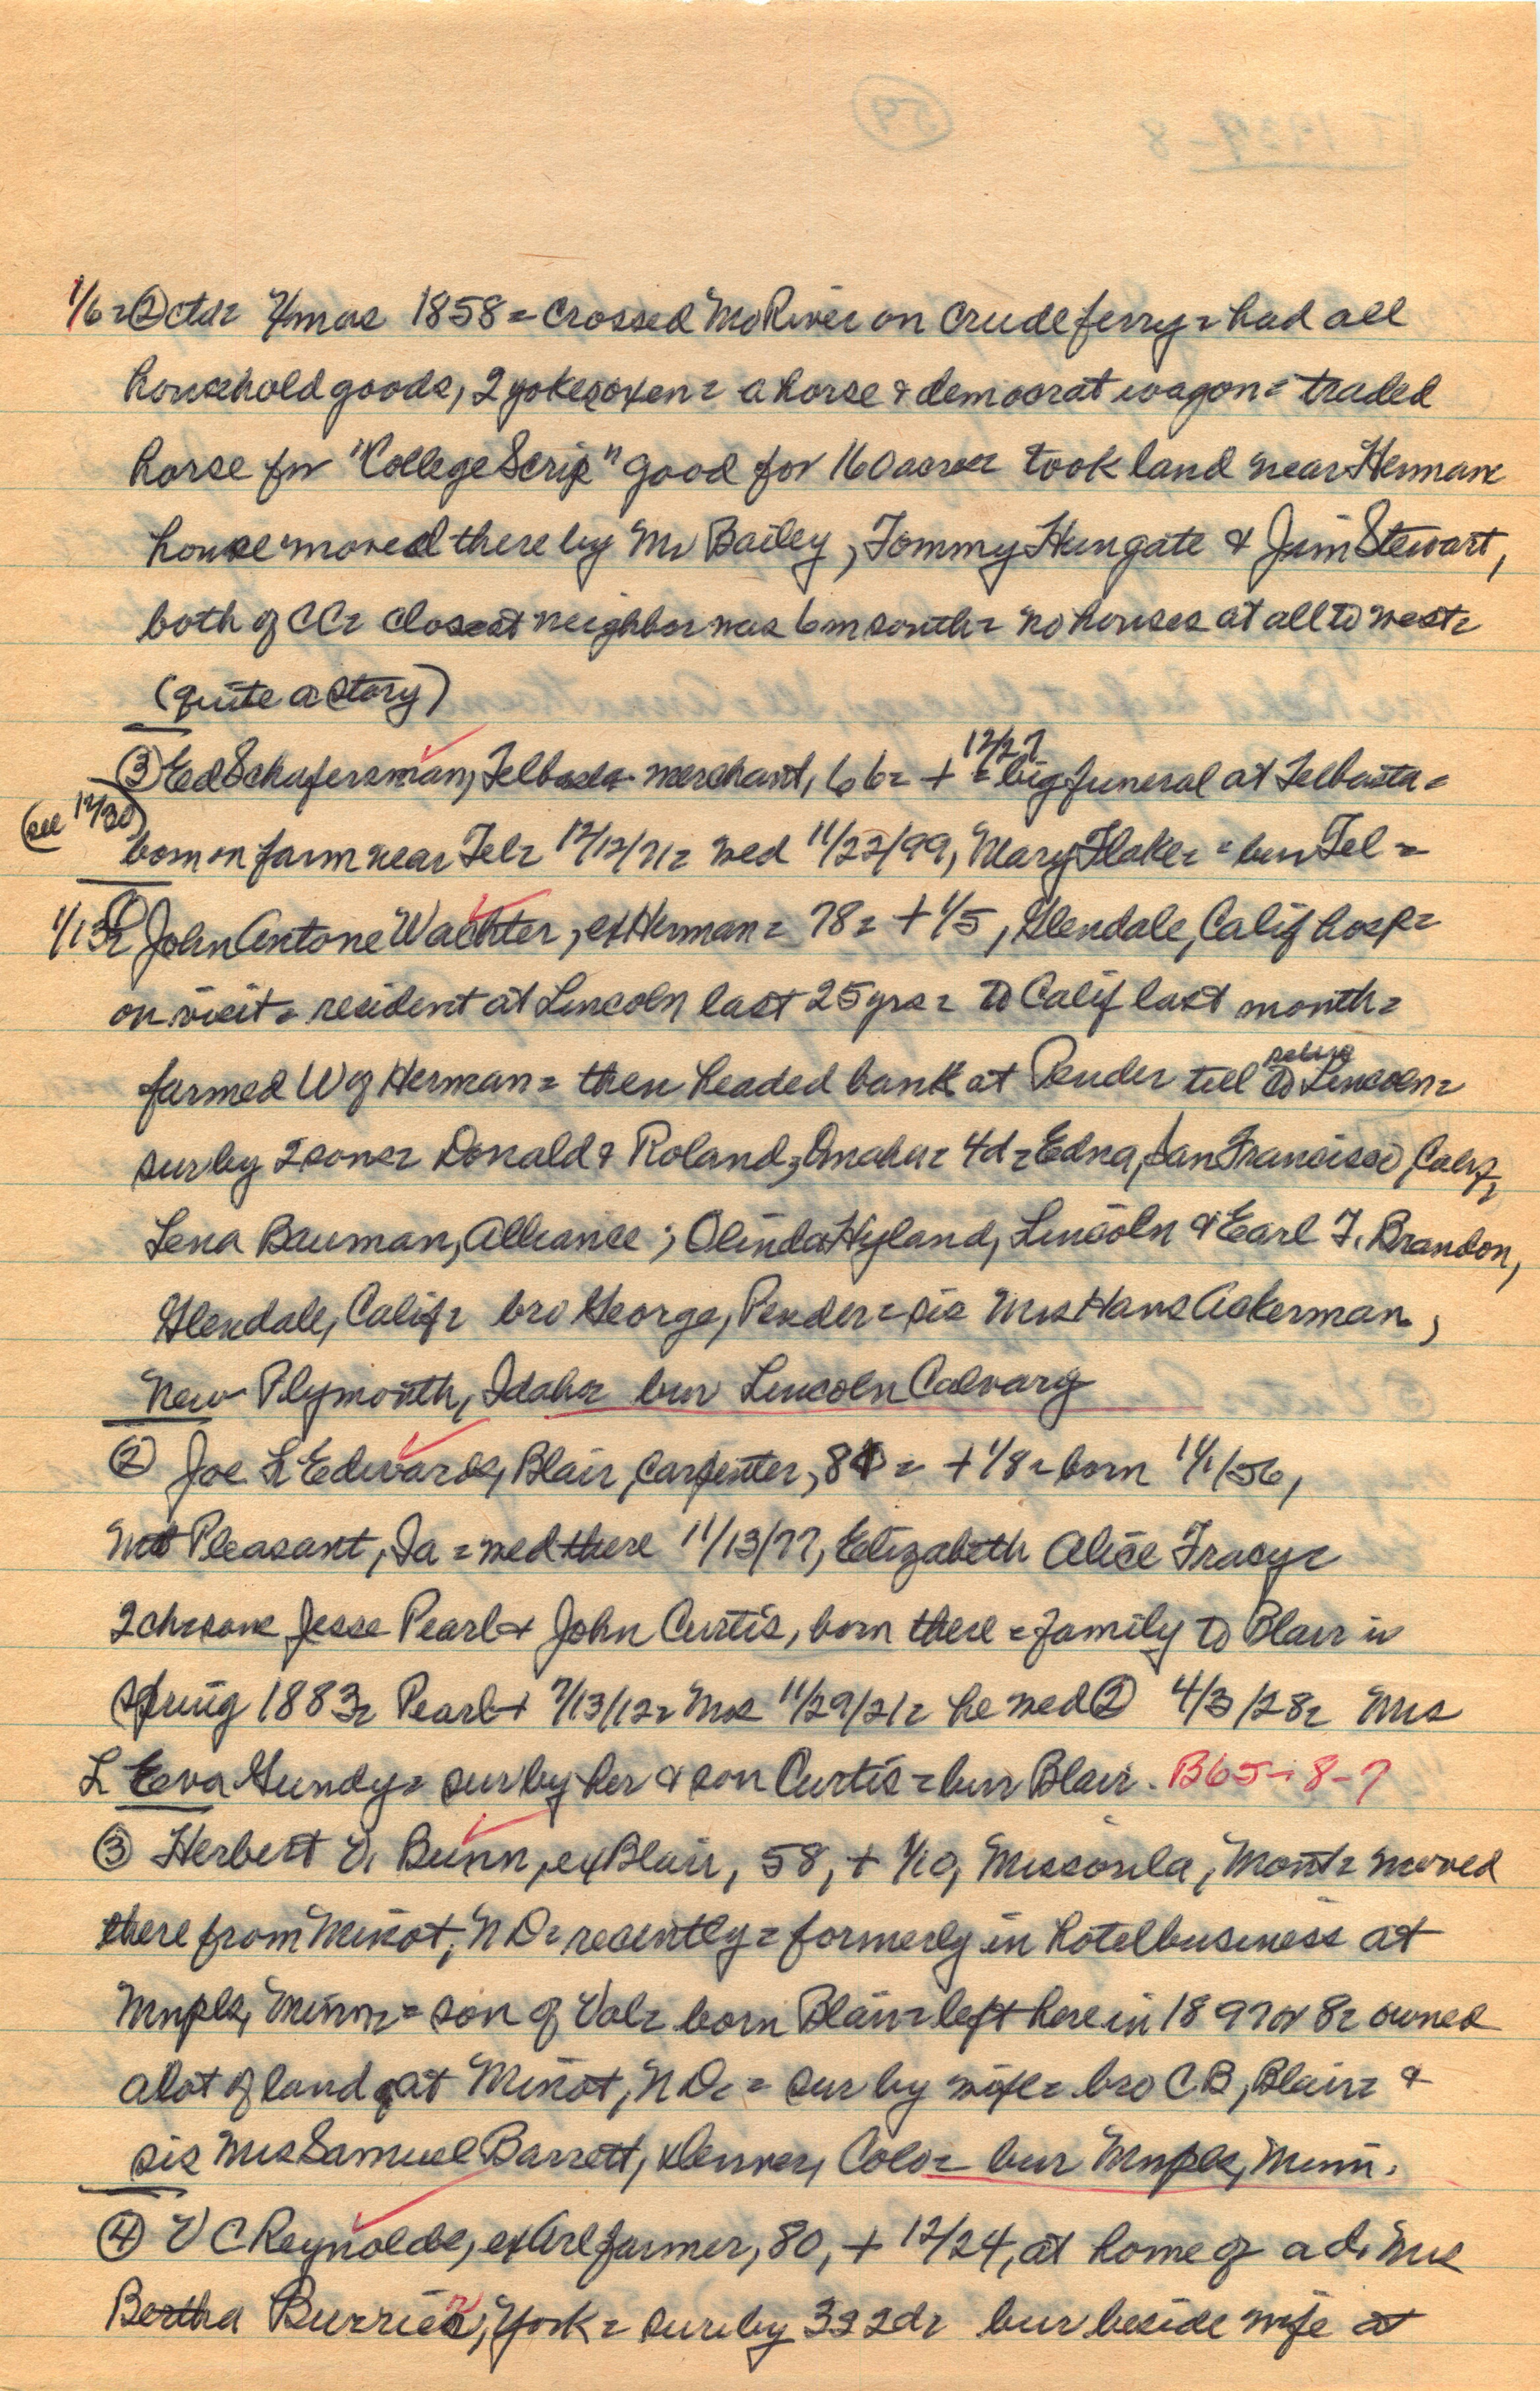 1/6= ② ctd= Xmas 1858= crossed Mo River on crude ferry= had all
household goods, 2 yokes oxen= a horse & democrat wagon= traded
horse for "College Scrip" good for 160 acres= took land near Herman=
house moved there by Mr Bailey, Tommy Hungate & Jim Stewart,
both of CC= closest neighbor was 6m south= no houses at all to west=
(quite a story)
12/27
③ Ed Schafersman, Telbasta merchant, 66= + = big funeral at Telbasta=
(see 12/30)
born on farm near Tel= 12/12/71= wed 11/22/99, Mary Flake= = bur Tel=
1/13= ① John Antone Wachter, ex Herman= 78= + 1/5, Glendale, Calif hosp=
on visit= resident at Lincoln last 25 yrs= to Calif last month=
farmed W of Herman= then headed bank at Pender till to Lincoln=
sur by 2 sons= Donald & Roland, Omaha= 4d= Edna, San Francisco, Calif,
Lena Bauman, Alliance; Olinda Hyland, Lincoln & Earl F. Brandon,
Glendale, Calif= bro George, Pender= sis Mrs Hans Ackerman,
New Plymouth, Idaho= bur Lincoln Calvary
② Joe L Edwards, Blair, carpenter, = +1/8= born 11/1/56,
Mt Pleasant, Ia= wed there 11/13/77, Elizabeth Alice Tracy=
2ch= sons Jesse Pearl & John Curtis, born there= family to Blair in
spring 1883= Pearl + 7/13/12= Mrs 11/29/21= he wed ② 4/3/28= Mrs
L Eva Gundy= sur by her & son Curtis= bur Blair. B65-8-7
③ Herbert V. Bunn, ex Blair, 58, + 1/10, Missoula, Mont= moved
there from Minot, ND= recently= formerly in hotel business at
Mnpls, Minn= son of Val= born Blair= left here in 1897 or 8= owned
a lot of land at Minot, ND= = sur by wife= bro CB, Blair= &
sis Mrs Samuel Barrett, Denver, Colo= bur Mnpls, Minn.
④ V C Reynolds, ex Arl farmer, 80, + 12/24, at home of a d, Mrs
Bertha, York= sur by 3s 2d= bur beside wife at